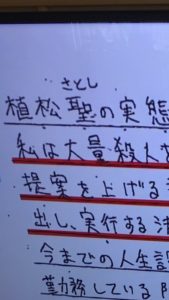 さとし
植松聖の実態
私は大量殺人を
提案を上げる
出し、実行する
今までの人生
勤務している